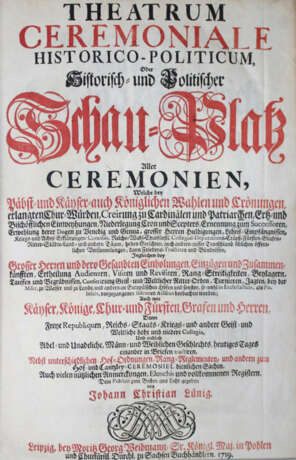 THEATRUM
CEREMONIALE
HISTORICO-POLITICUM,
Oder
Historisch- und Politischer
Schau-Platz
Aller
CEREMONIEN,
Welche bey
Päbst- und Käyser- auch Königlichen Wahlen und Crönungen,
erlangten Chur-Würden, Creirung zu Cardinälen und Patriarchen, Ertz- und
Bischöfflichen Einweyhungen, Niederlegung Cron und Scepters, Ernennung zum Successoren,
Erwehlung derer Dogen zu Venedig und Genua,
Grosser Herren und dero Gesandten Einholungen, Einzügen und Zusammen-
künfften, Ertheilung Audientzen, Visiten und Revisiten, Rang-Streitigkeiten, Beylagern,
Tauffen und Begräbnissen, Conferirung Geist- und Weltlicher Ritter-Orden, Turnieren, Jagten,
Auch wie
Käyser, Könige, Chur- und Fürsten, Grafen und Herren,
Dann
Freye Republiquen, Reichs- Staats- Kriegs- und andere Geist- und
Weltliche hohe und niedere Collegia,
Und endlich
Adel- und Unadeliche, Männ- und Weiblichen Geschlechts, heutiges Tages
einander in Briefen tractiren,
Nebst unterschiedlichen Hof-Ordnungen, Rang-Reglementen, und andern zum
Hof- und Cantzley-CEREMONIEL dienlichen Sachen,
Auch vielen nützlichen Anmerckungen, Elenchis und vollkommenen Registern,
Dem Publico zum Besten ans Licht gegeben
von
Johann Christian Lünig.
Leipzig, bey Moritz Georg Weidmann, Sr. Königl. Maj. in Pohlen
und Churfürstl. Durchl. zu Sachsen Buchhändlern, 1719.